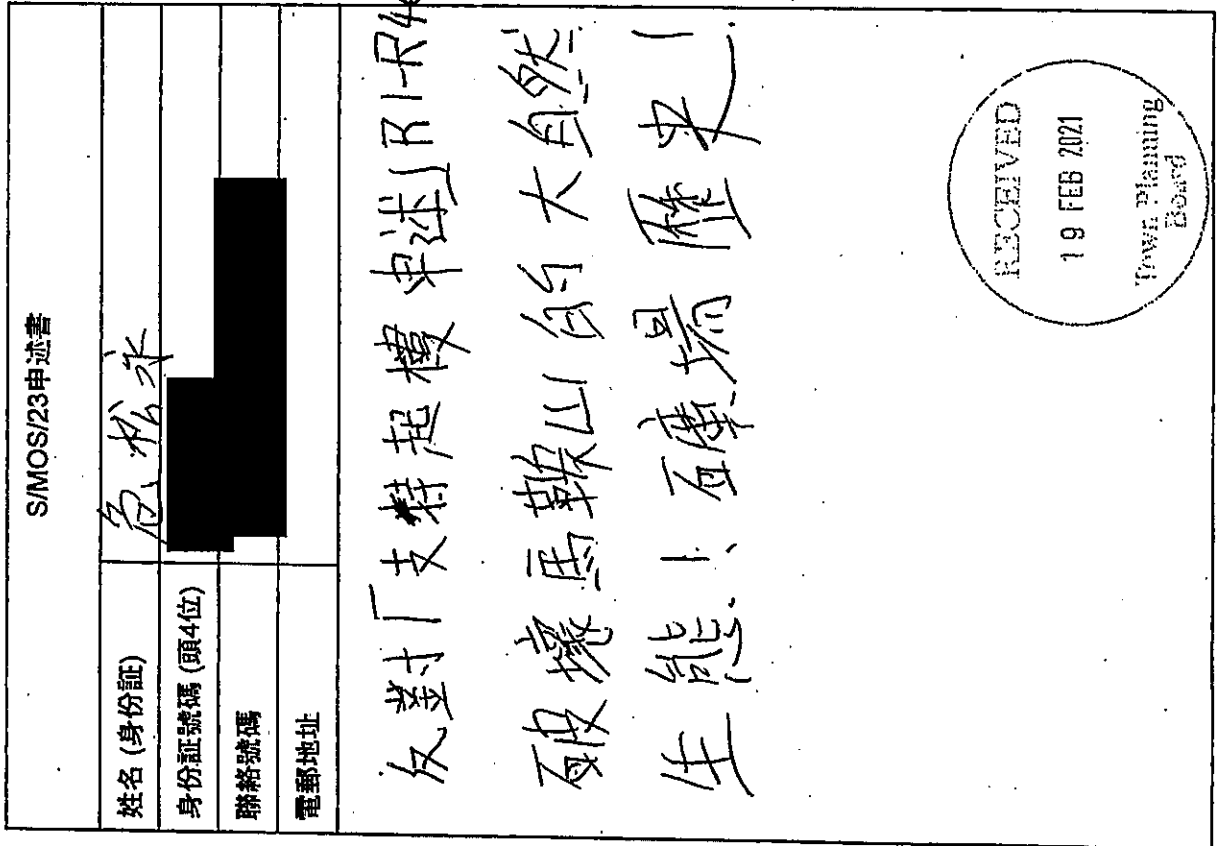 S/MOS/23申述書
姓名 (身份証) 危松泳
身份証號碼 (頭4位)
聯絡號碼
電郵地址
反對「支持起樓申述」R1-R4
破壞馬鞍山的大自然
生態!、百庫場歷史!
RECEIVED
19 FEB 2021
Town Planning
Board